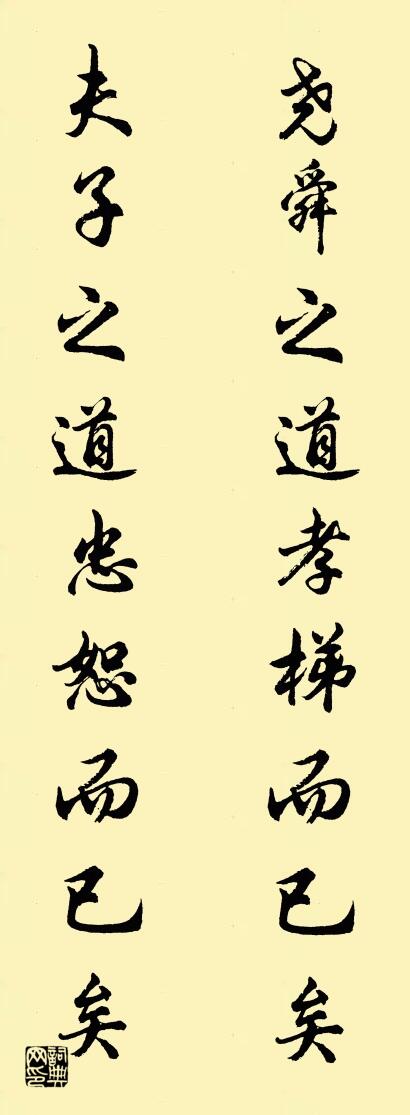 尧舜之道孝梯而已矣
夫子之道忠恕而已矣
詞典网印